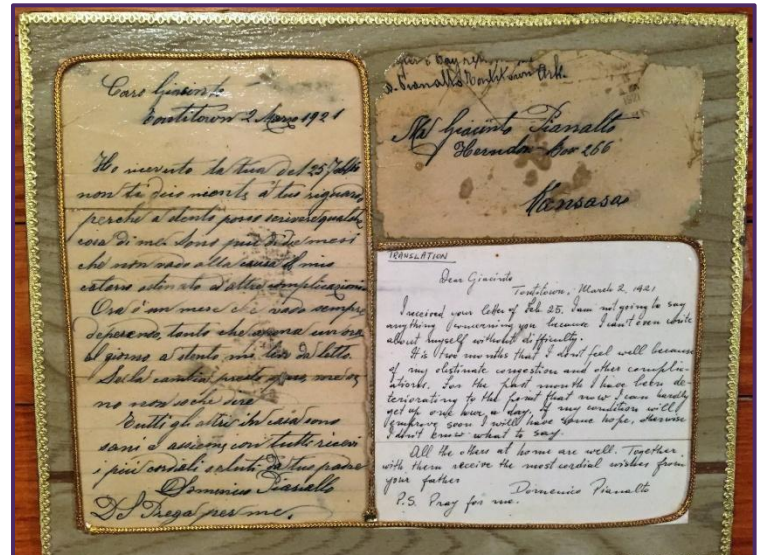 Caro Giacinto
Tontitown 2 Marzo 1921
Ho ricevuto la tua del 25 Febb.
non ti dico niente a tuo riguardo
perche a stento posso scrivere qualche
cosa di me. Sono più di due mesi
che non
catarro ostinato d'altre complicazioni
Ora é un mese che vado sempre
deperendo, tanto che apena un ora
al giorno a stento mi levo da letto
Se la cambia presto
no non so che dire
Tutti gli altri in casa sono
sani e assieme con tutti ricevi
i più cordiali saluti da tuo padre
Domenico Pianalto
P.S. Prega per me.
after 5 Day
D. Pianalto Tontitown Ark.
Mr Giacinto Pianalto
Herndon Box 266
Kansas
TRANSLATION
Dear Giacinto
Tontitown, March 2, 1921
I received your letter of Feb. 25. I am not going to say
anything concerning you because I can't even write
about myself without difficulty.
It is two months that I don't feel well because
of my obstinate congestion and other compli-
ations. For the past month I have been de-
teriorating to the point that now I can hardly
get up one hour a day. If my condition will
improve soon I will have some hope, otherwise
I don't know what to say.
All the others at home are well. Together
with them receive the most cordial wishes from
your father
Domenico Pianalto
P.S. Pray for me.